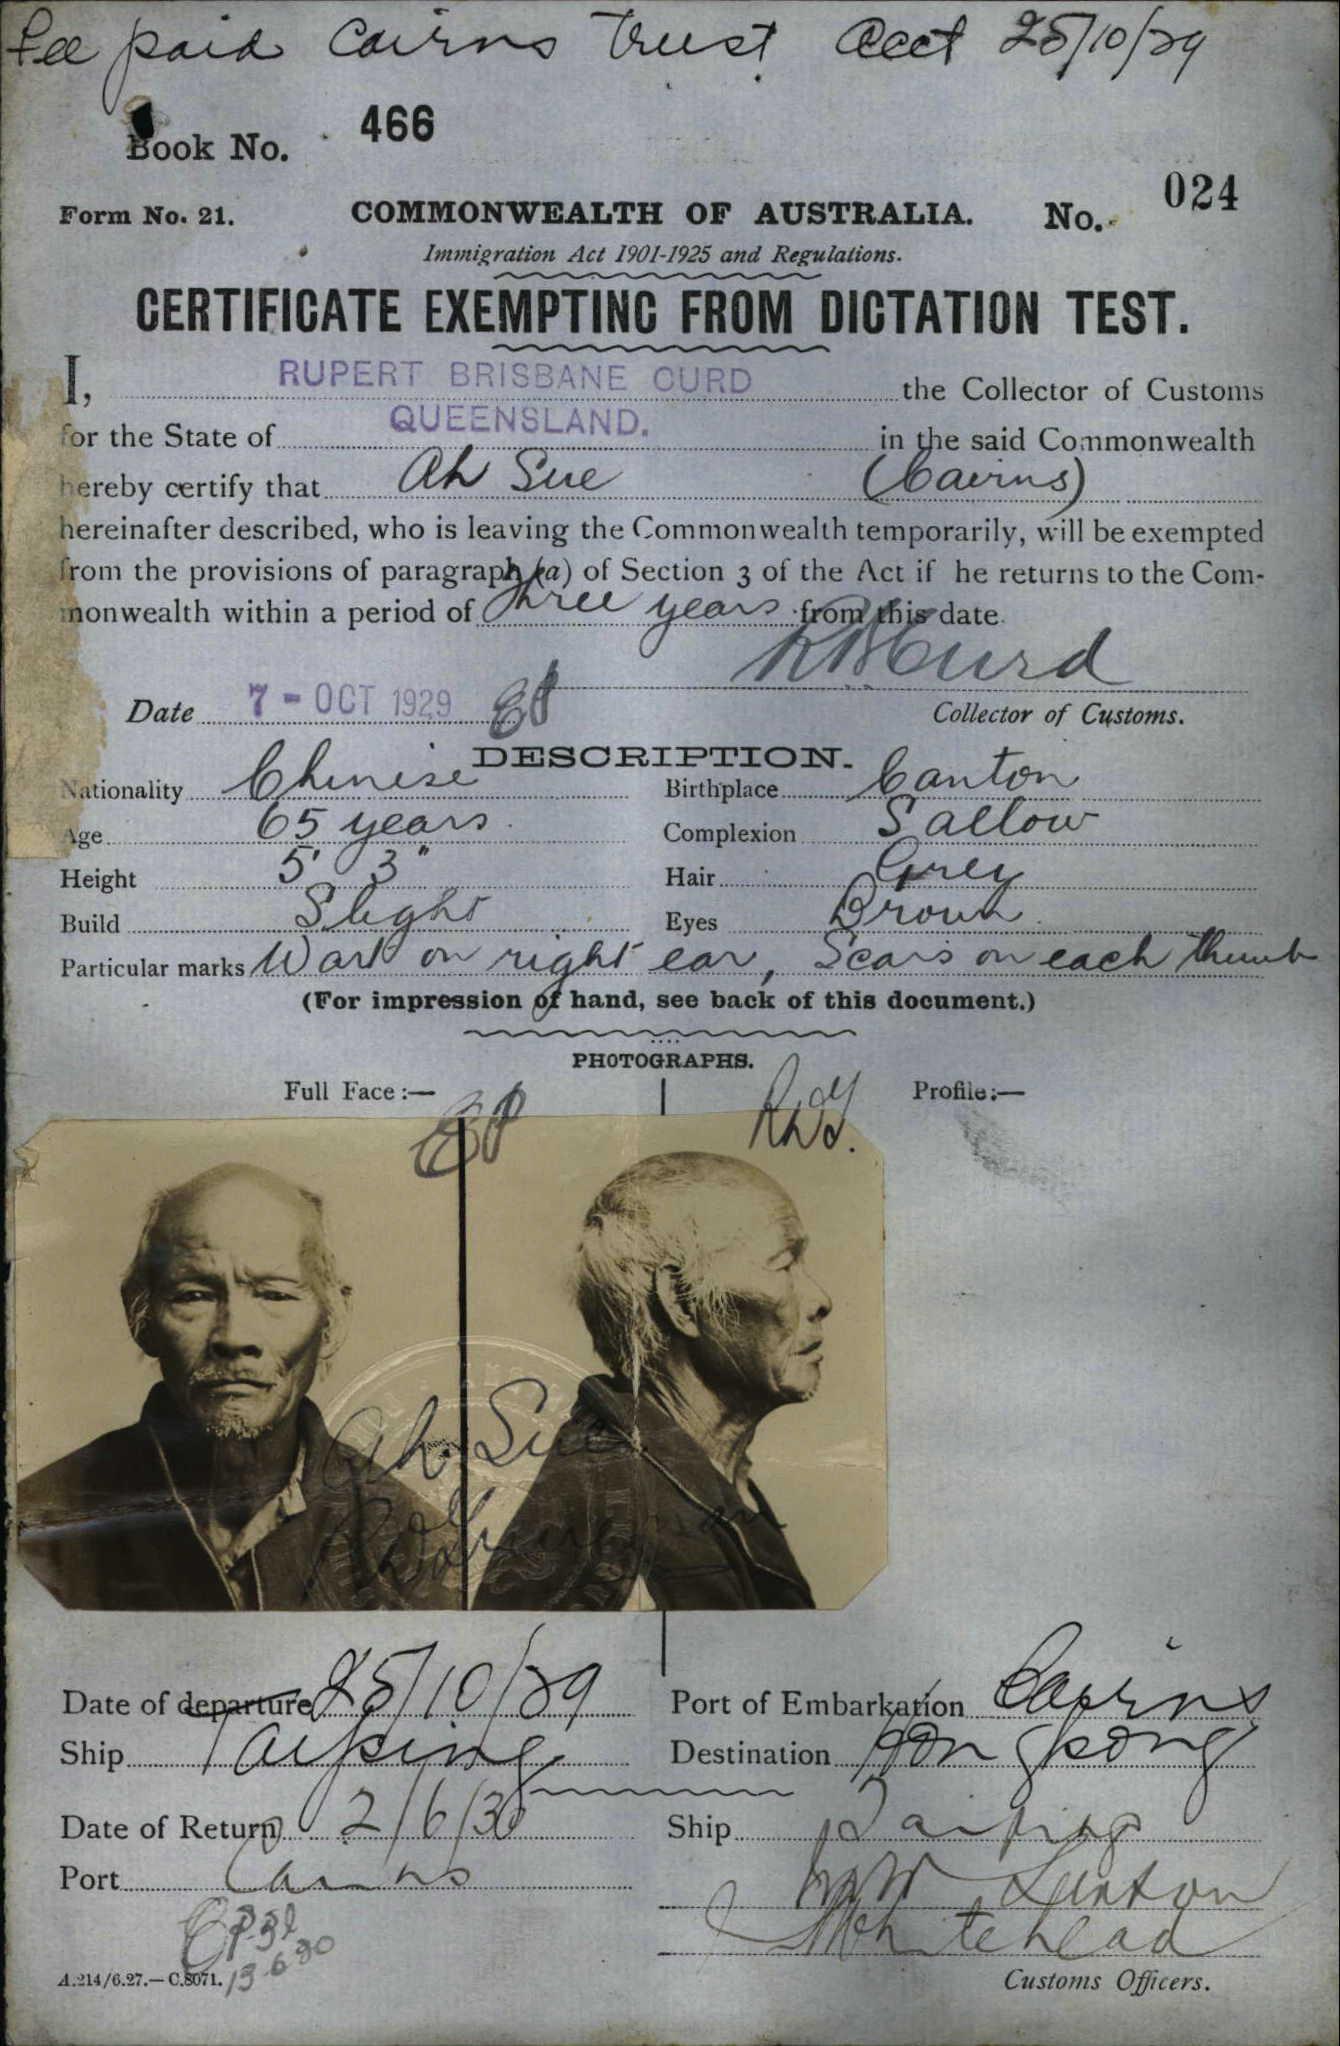 Fee paid Cairns Trust Acct 25/10/29
Book No. 466
Form No. 21. COMMONWEALTH OF AUSTRALIA. No. 024
Immigration Act 1901-1925 and Regulations.
CERTIFICATE EXEMPTING FROM DICTATION TEST.
I, RUPERT BRISBANE CURD the Collector of Customs
for the State of QUEENSLAND. in the said Commonwealth
hereby certify that Ah Sue (Cairns)
hereinafter described, who is leaving the Commonwealth temporarily, will be exempted
from the provisions of paragraph (a) of Section 3 of the Act if he returns to the Com-
monwealth within a period of three years from this date.
R B Curd
Date 7 - OCT 1929 Collector of Customs.
DESCRIPTION.
Nationality Chinese Birthplace Canton
Age 65 years Complexion Sallow
Height 5' 3" Hair Grey
Build Slight Eyes Brown
Particular marks Wart on right ear, Scars on each thumb
(For impression of hand, see back of this document.)
PHOTOGRAPHS.
Full Face:— Profile:—
Ah Sue
Date of departure 25/10/29 Port of Embarkation Cairns
Ship Taiping Destination Hong Kong
Date of Return 2/6/30 Ship Taiping
Port Cairns
Linton
Whitehead
13.6.30
A.214/6.27.—C.8071. Customs Officers.